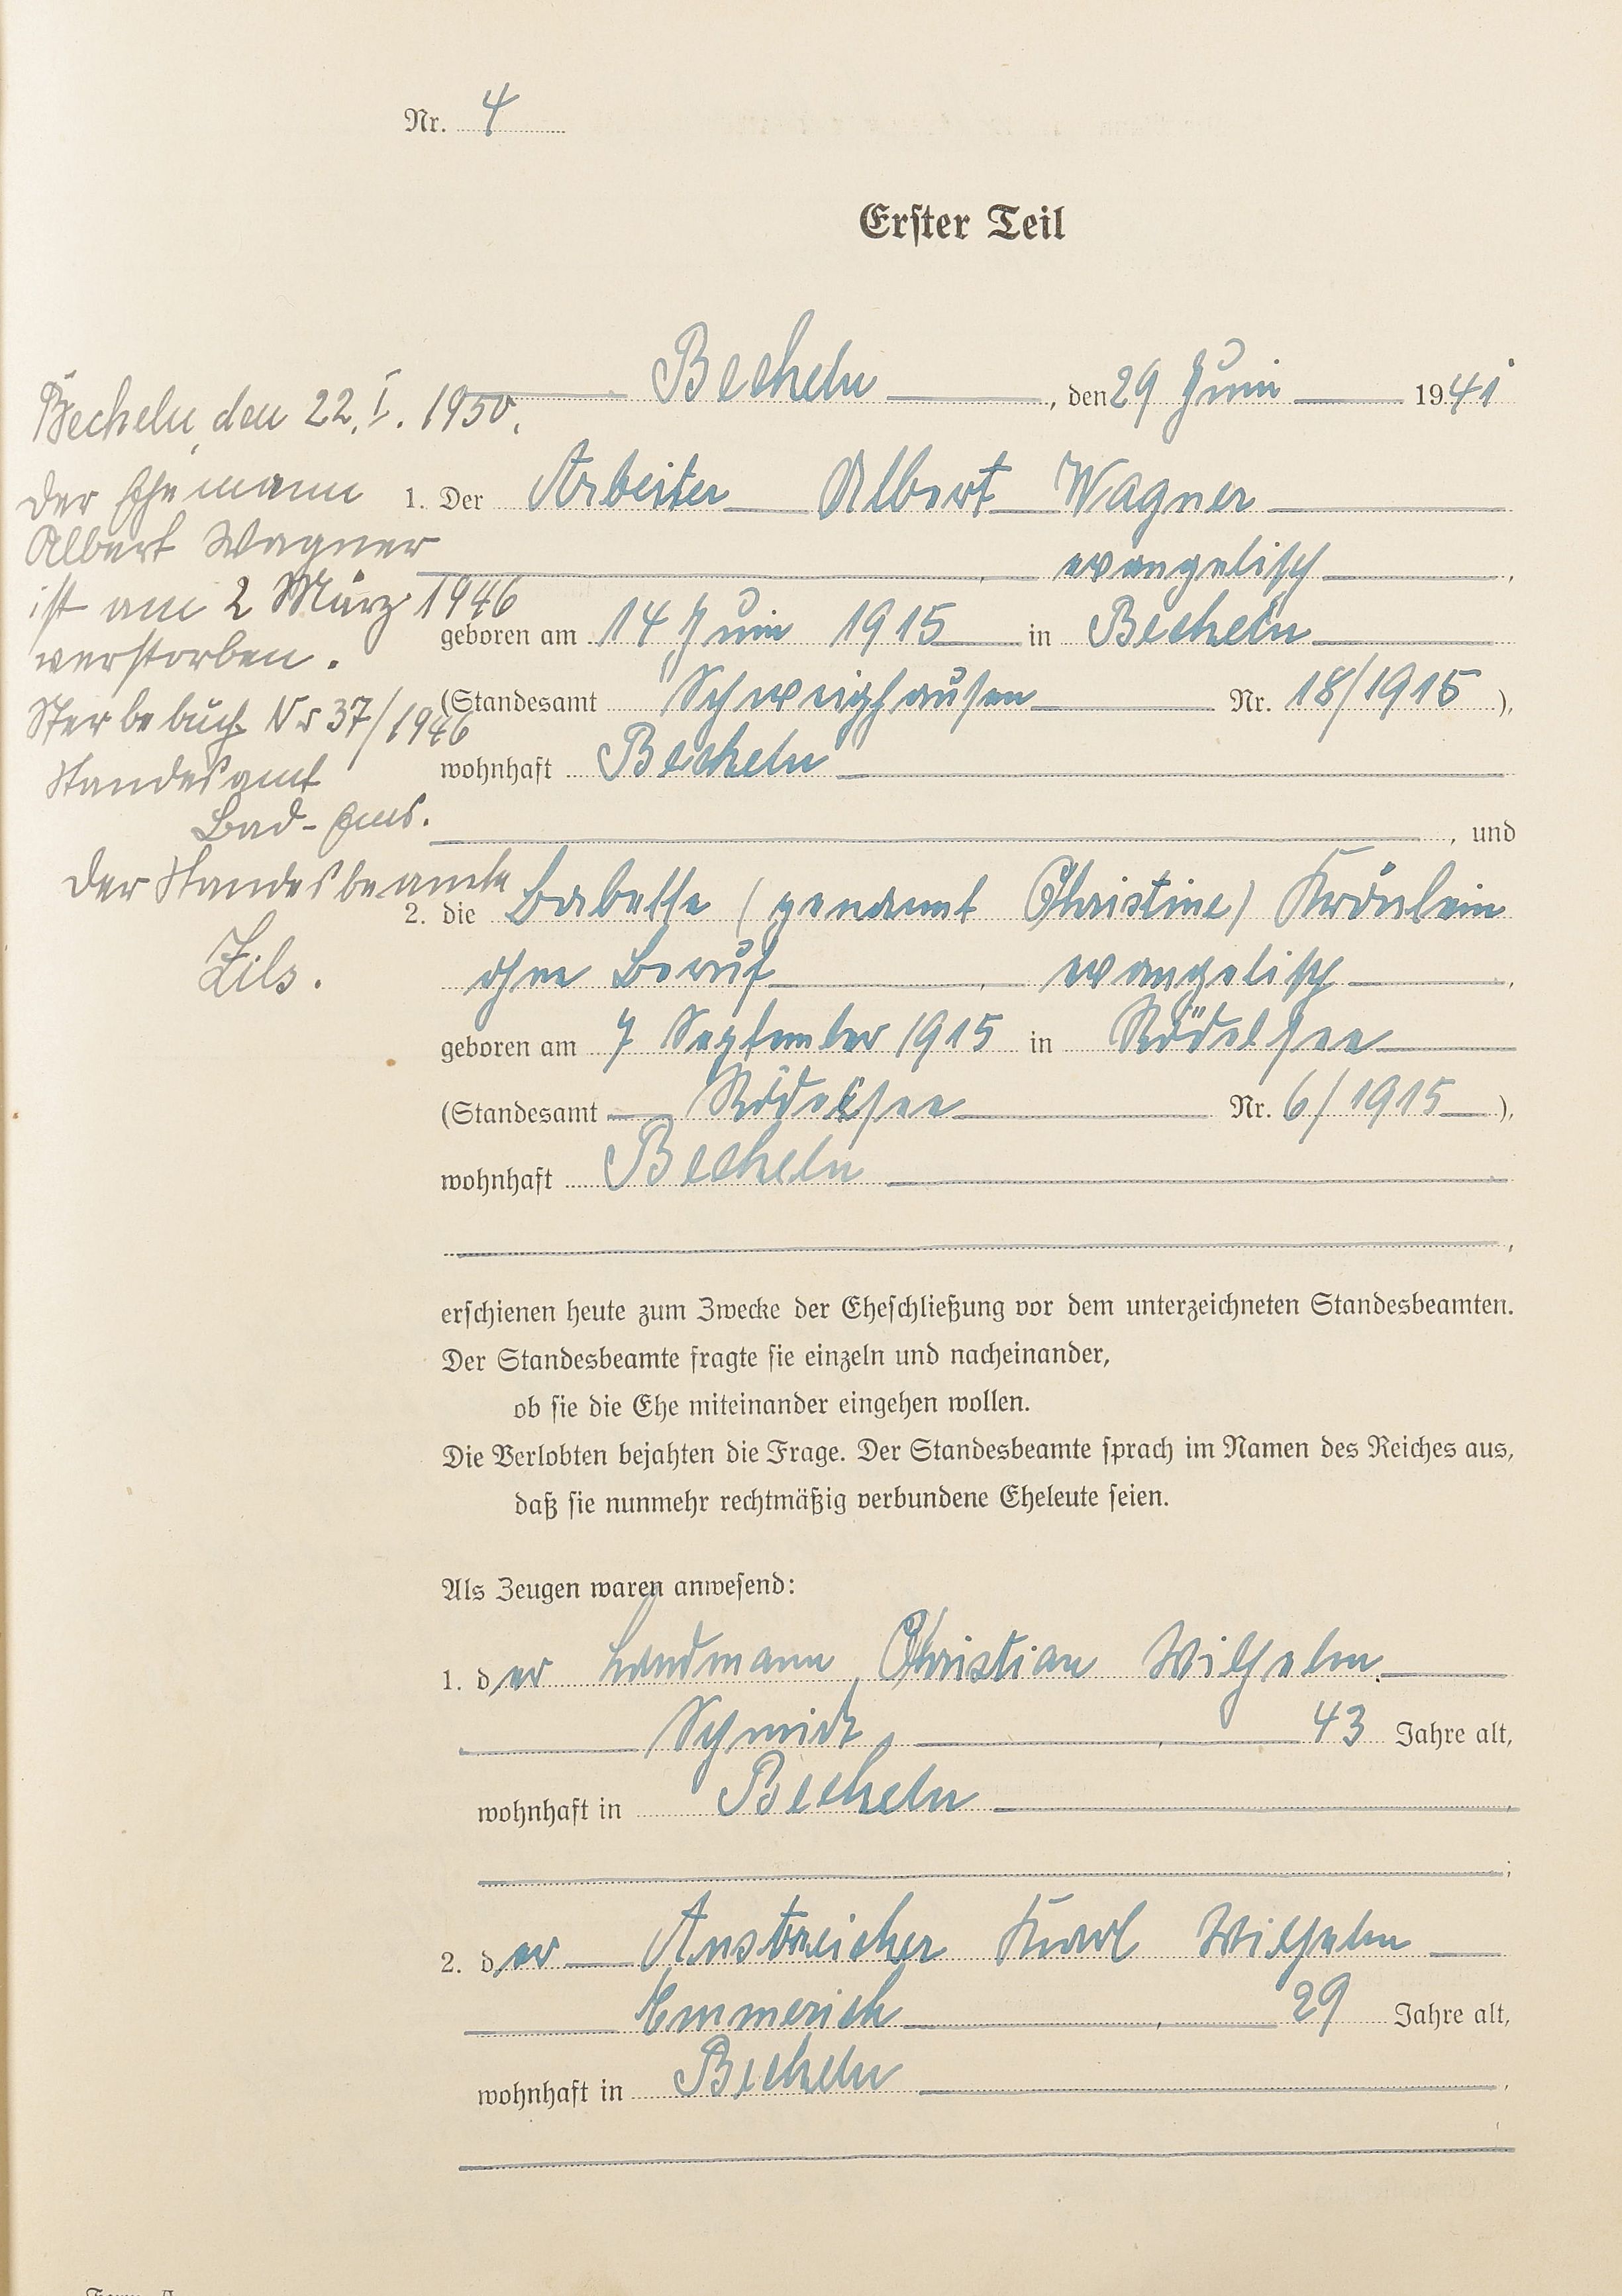 Nr. 4
Erster Teil
Becheln, den 29 Juni 1941
1. Der Arbeiter Albert Wagner
evangelisch,
geboren am 14 Juni 1915 in Becheln
(Standesamt Schweighausen Nr. 18/1915),
wohnhaft Becheln
, und
2. die Babette (genannt Christine) Kränlein
ohne Beruf, evangelisch,
geboren am 7 September 1915 in Rödelsee
(Standesamt Rödelsee Nr. 6/1915),
wohnhaft Becheln
,
erschienen heute zum Zwecke der Eheschließung vor dem unterzeichneten Standesbeamten.
Der Standesbeamte fragte sie einzeln und nacheinander,
ob sie die Ehe miteinander eingehen wollen.
Die Verlobten bejahten die Frage. Der Standesbeamte sprach im Namen des Reiches aus,
daß sie nunmehr rechtmäßig verbundene Eheleute seien.
Als Zeugen waren anwesend:
1. der Landmann Christian Wilhelm
Schmidt, 43 Jahre alt,
wohnhaft in Becheln
;
2. der Anstreicher Karl Wilhelm
Emmerich, 29 Jahre alt,
wohnhaft in Becheln,
Becheln, den 22. I. 1950.
Der Ehemann
Albert Wagner
ist am 2 März 1946
verstorben.
Sterbebuch Nr 37/1946
Standesamt
Bad-Ems.
Der Standesbeamte
Zils.